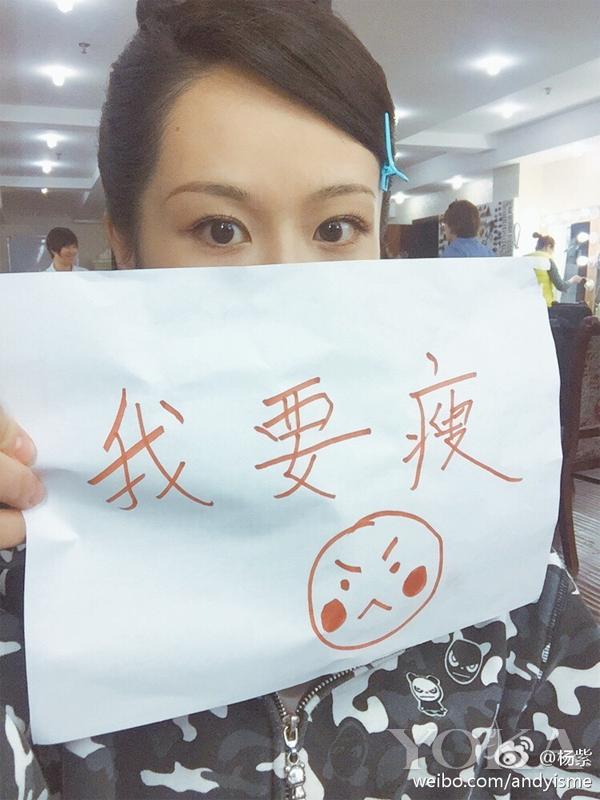 我要瘦
YOKA
@杨紫
weibo.com/andyisme